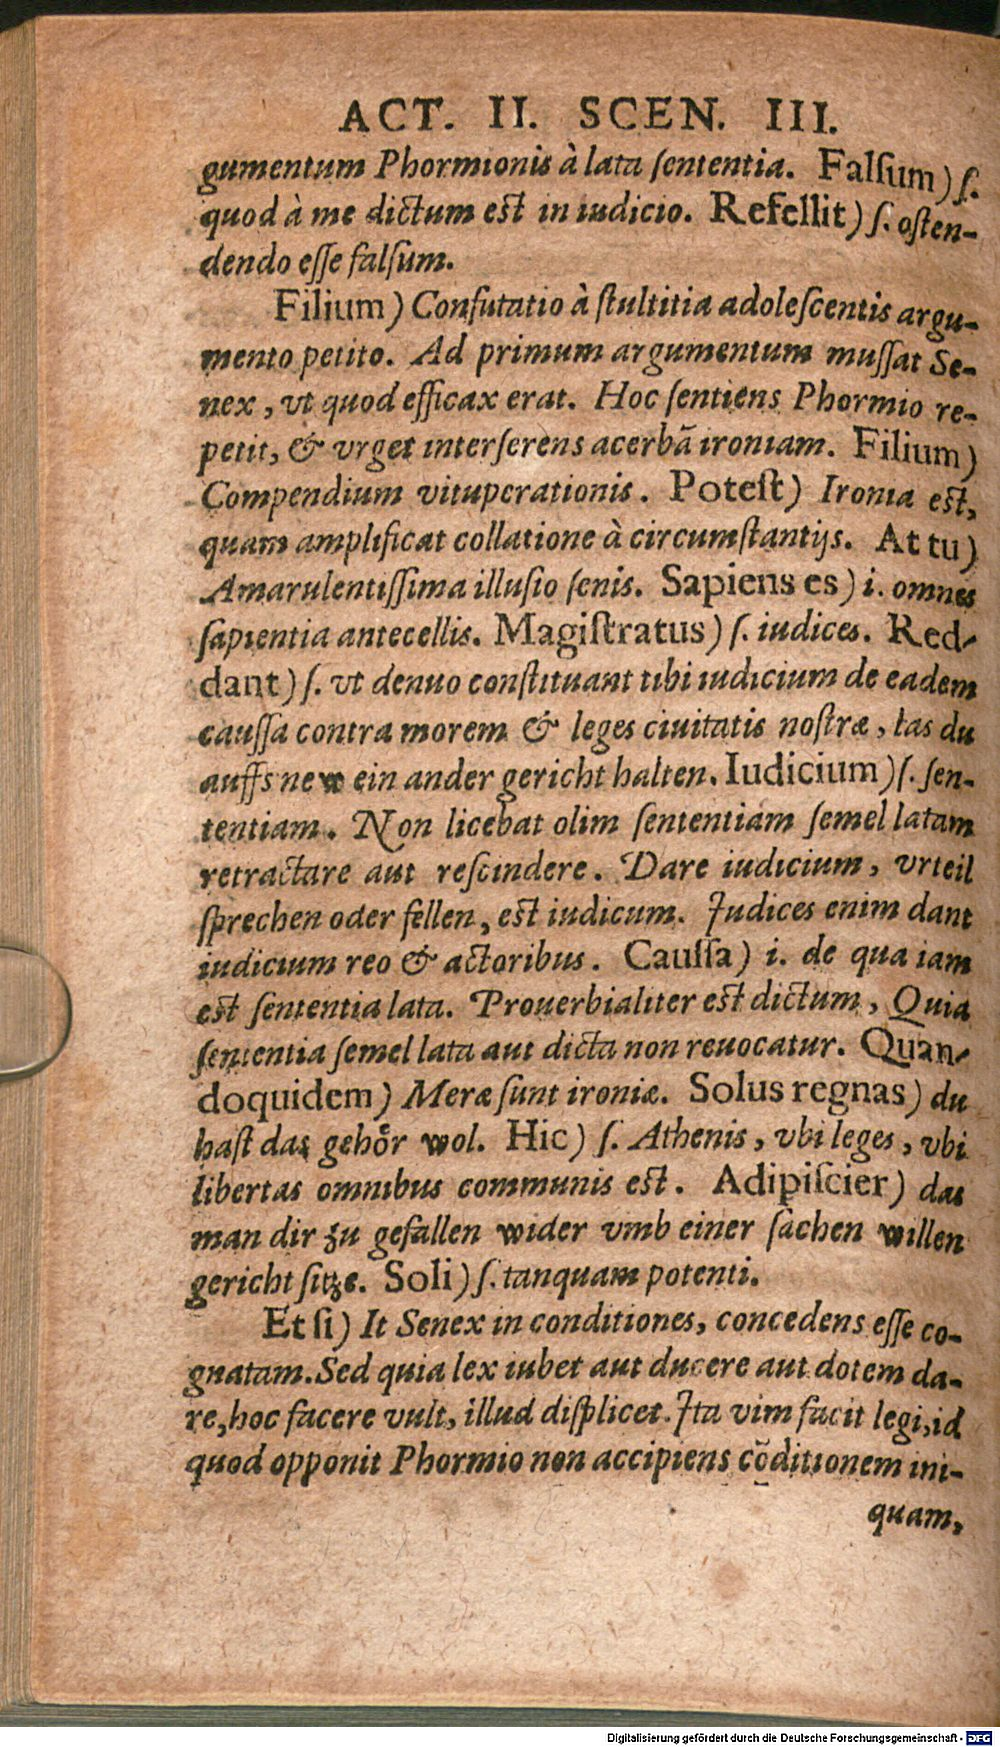 ACT. II. SCEN. III.
gumentum Phormionis à lata ſententia. Falſum) ſ.
quod à me dictum est in iudicio. Refellit) ſ. oſten-
dendo eſſe falſum.
Filium) Confutatio à ſtultitia adoleſcentis argu-
mento petito. Ad primum argumentum muſſat Se-
nex, vt quod efficax erat. Hoc ſentiens Phormio re-
petit, & vrget interſerens acerbã ironiam. Filium)
Compendium vituperationis. Poteſt) Ironia est,
quam amplificat collatione à circumſtantijs. At tu)
Amarulentiſſima illuſio ſenis. Sapiens es) i. omnes
ſapientia antecellis. Magiſtratus) ſ. iudices. Red-
dant) ſ. vt denuo conſtituant tibi iudicium de eadem
cauſſa contra morem & leges ciuitatis noſtræ, las du
auffs new ein ander gericht halten. Iudicium) ſ. ſen-
tentiam. Non licebat olim ſententiam ſemel latam
retractare aut reſcindere. Dare iudicium, vrteil
ſprechen oder fellen, est iudicum. Judices enim dant
iudicium reo & actoribus. Cauſſa) i. de qua iam
est ſententia lata. Prouerbialiter est dictum, Quia
ſententia ſemel lata aut dicta non reuocatur. Quan-
doquidem) Meræ ſunt ironiæ. Solus regnas) du
haſt das gehoͤr wol. Hic) ſ. Athenis, vbi leges, vbi
libertas omnibus communis est. Adipiſcier) das
man dir zu gefallen wider vmb einer ſachen willen
gericht ſitze. Soli) ſ. tanquam potenti.
Et ſi) It Senex in conditiones, concedens eſſe co-
gnatam. Sed quia lex iubet aut ducere aut dotem da-
re, hoc facere vult, illud diſplicet. Ita vim facit legi, id
quod opponit Phormio non accipiens cõditionem ini-
quam,
Digitalisierung gefördert durch die Deutsche Forschungsgemeinschaft - DFG